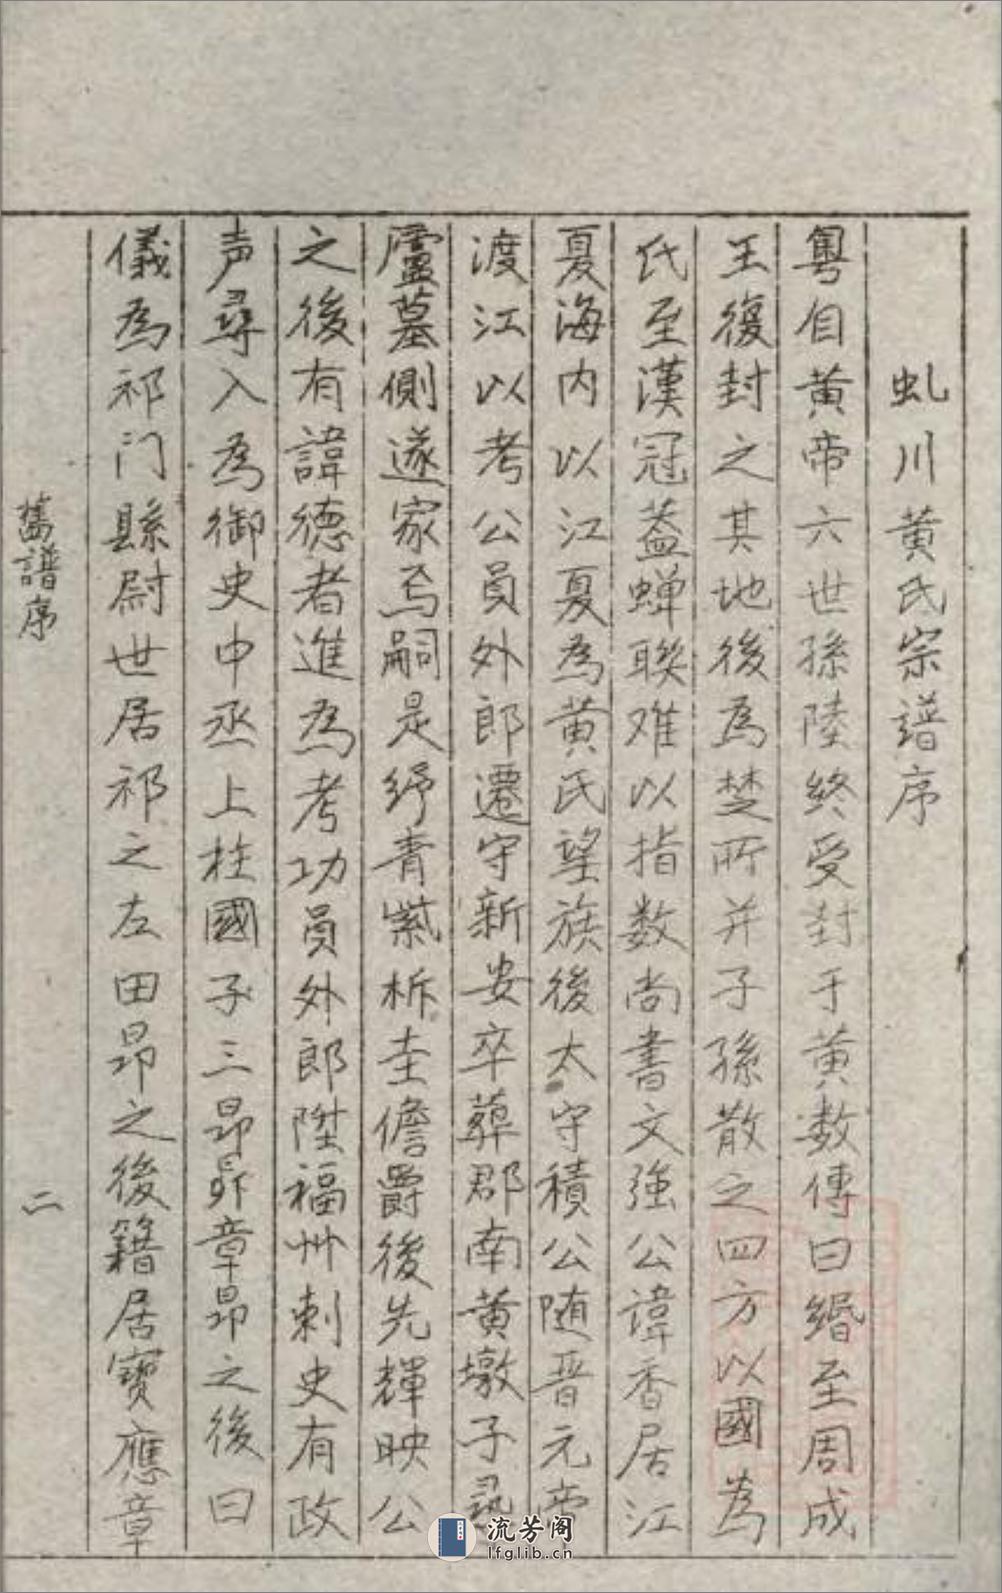 虬川黄氏宗譜序
粤自黄帝六世孫陸終受封于黄数傳曰緡至周成
王復封之其地後為楚所并子孫散之四方以國為
氏至漢冠蓋蟬聯难以指数尚書文強公諱香居江
夏海内以江夏為黄氏望族後太守積公随晋元帝
渡江以考公員外郎遷守新安卒葬郡南黄墩子尋
廬墓側遂家焉嗣是纾青紫析圭儋爵後先輝映公
之後有諱德者進為考功員外郎陞福州刺史有政
声尋入為御史中丞上柱國子三昂昴章昂之後曰
儀為祁门縣尉世居祁之左田昂之後籍居寶應章
舊譜序
二
流芳阁
lfglib.cn